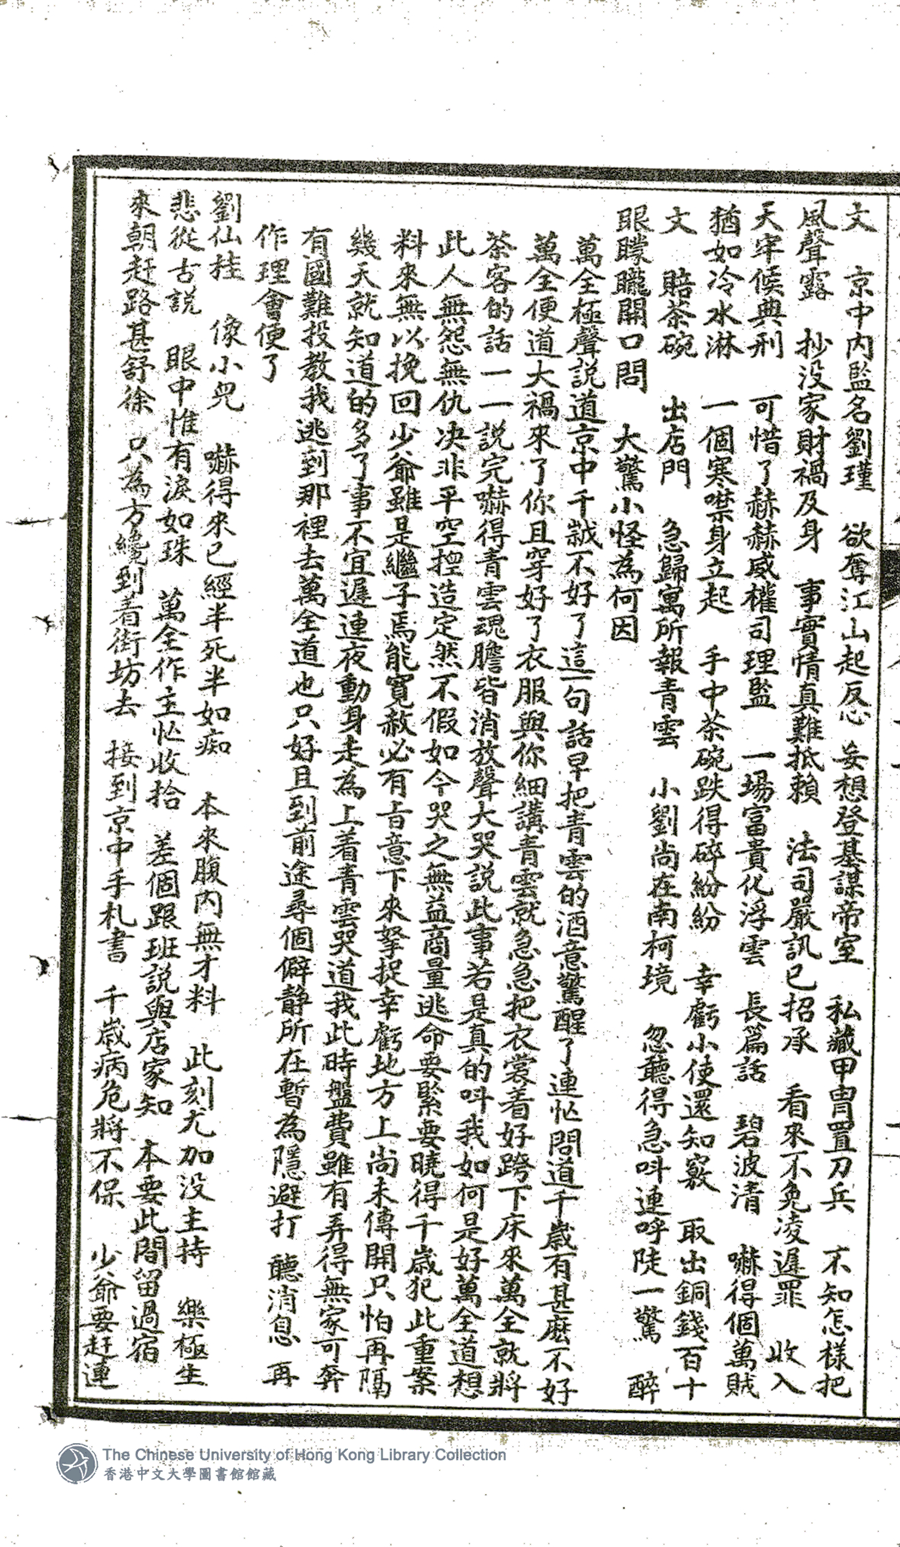 文　京中內監名劉瑾　欲奪江山起反心　妄想登基謀帝室　私藏甲胄置刀兵　不知怎樣把
風聲露　抄没家財禍及身　事實情真難抵賴　法司嚴訊已招承　看來不免凌遲罪　收入
天牢候典刑　可惜了赫赫威權司理監　一場富貴化浮雲　長篇話　碧波清　嚇得個萬賊
猶如冷水淋　一個寒噤身立起　手中茶碗跌得碎紛紛　幸虧小使還知竅　取出銅錢百十
文　賠茶碗　出店門　急歸寓所報青雲　小劉尚在南柯境　忽聽得急呌連呼陡一驚　醉
眼矇矓開口問　大驚小怪為何因
萬全極聲説道京中千歲不好了這一句話早把青雲的酒意驚醒了連忙問道千歲有甚麽不好
萬全便道大禍來了你且穿好了衣服與你細講青雲就急急把衣裳着好跨下床來萬全就將
茶客的話一一説完嚇得青雲魂膽皆消放聲大哭説此事若是真的呌我如何是好萬全道想
此人無怨無仇决非平空揑造定然不假如今哭之無益商量逃命要緊要曉得千歲犯此重案
料來無以挽回少爺雖是繼子焉能寬赦必有旨意下來拏捉幸虧地方上尚未傳開只怕再隔
幾天就知道的多了事不宜遲連夜動身走為上着青雲哭道我此時盤費雖有弄得無家可奔
有國難投教我逃到那裡去萬全道也只好且到前途尋個僻静所在暫為隱避打聽消息再
作理會便了
劉仙桂　像小兒　嚇得來已經半死半如痴　本來腹内無才料　此刻尤加没主持　樂極生
悲從古説　眼中惟有淚如珠　萬全作主忙收拾　差個跟班説與店家知　本要此間留過宿
來朝赶路甚舒徐　只為方纔到着街坊去　接到京中手札書　千歲病危將不保　少爺要赶連
The Chinese University of Hong Kong Library Collection
香港中文大學圖書館館藏